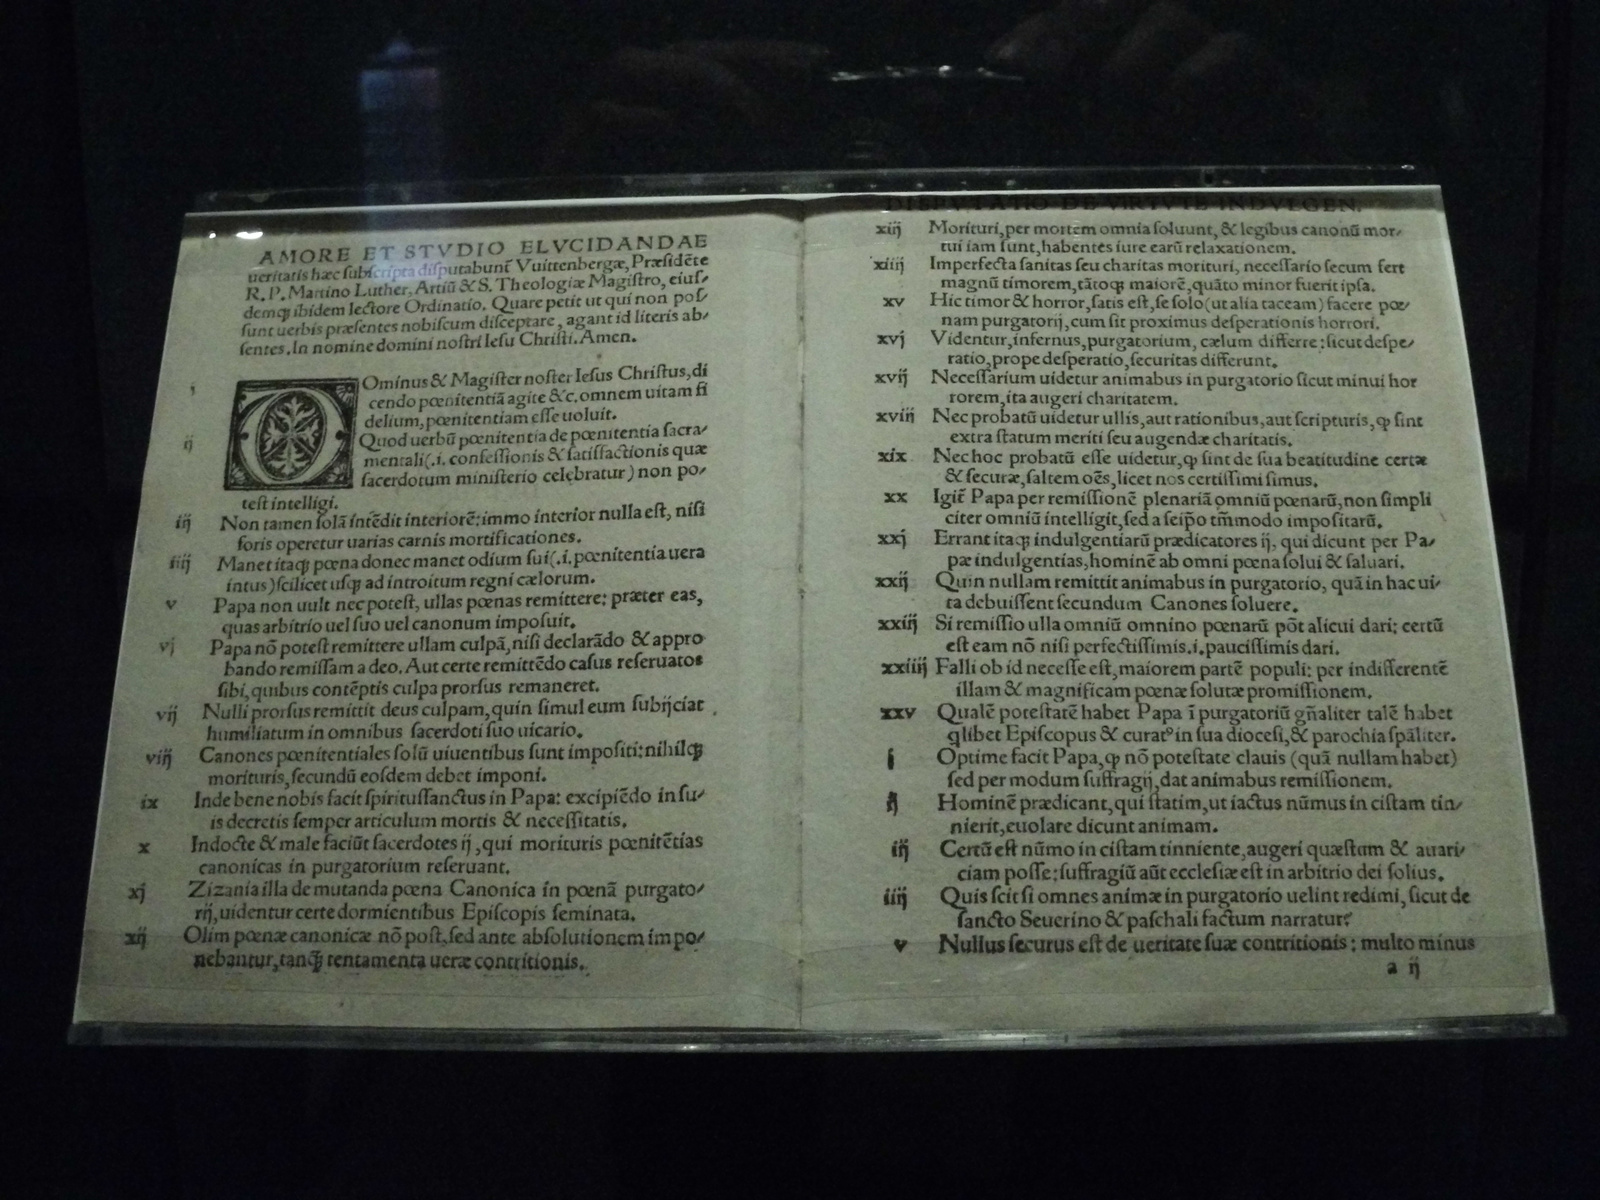 AMORE ET STVDIO ELVCIDANDAE
ueritatis hæc subscripta disputabunt̃ Vuittenbergæ, Præsidẽte
R. P. Martino Luther, Artiũ & S. Theologiæ Magistro, eius⸗
demq̃ ibidem lectore Ordinatio. Quare petit ut qui non pos⸗
sunt uerbis præsentes nobiscum disceptare, agant id literis ab⸗
sentes. In nomine domini nostri Iesu Christi. Amen.
i Ominus & Magister noster Iesus Christus, di
cendo pœnitentiã agite &c. omnem uitam fi
delium, pœnitentiam esse uoluit.
ij Quod uerbũ pœnitentia de pœnitentia sacra⸗
mentali(.i. confessionis & satisfactionis quæ
sacerdotum ministerio celebratur) non po⸗
test intelligi.
iij Non tamen solã intẽdit interiorẽ: immo interior nulla est, nisi
foris operetur uarias carnis mortificationes.
iiij Manet itaq̃ pœna donec manet odium sui(.i. pœnitentia uera
intus) scilicet usq̃ ad introitum regni cælorum.
v Papa non uult nec potest, ullas pœnas remittere: præter eas,
quas arbitrio uel suo uel canonum imposuit.
vj Papa nõ potest remittere ullam culpã, nisi declarãdo & appro
bando remissam a deo. Aut certe remittẽdo casus reseruatos
sibi, quibus contẽptis culpa prorsus remaneret.
vij Nulli prorsus remittit deus culpam, quin simul eum subijciat
humiliatum in omnibus sacerdoti suo uicario.
viij Canones pœnitentiales solũ uiuentibus sunt impositi: nihilq̃
morituris, secundũ eosdem debet imponi.
ix Inde bene nobis facit spiritussanctus in Papa: excipiẽdo in su⸗
is decretis semper articulum mortis & necessitatis.
x Indocte & male faciũt sacerdotes ij, qui morituris pœnitẽtias
canonicas in purgatorium reseruant.
xj Zizania illa de mutanda pœna Canonica in pœnã purgato⸗
rij, uidentur certe dormientibus Episcopis seminata.
xij Olim pœnæ canonicæ nõ post, sed ante absolutionem impo⸗
nebantur, tanq̃ tentamenta ueræ contritionis.
DISPVTATIO DE VIRTVTE INDVLGEN.
xiij Morituri, per mortem omnia soluunt, & legibus canonũ mor⸗
tui iam sunt, habentes iure earũ relaxationem.
xiiij Imperfecta sanitas seu charitas morituri, necessario secum fert
magnũ timorem, tãtoq̃ maiorẽ, quãto minor fuerit ipsa.
xv Hic timor & horror, satis est, se solo (ut alia taceam) facere pœ⸗
nam purgatorij, cum sit proximus desperationis horrori.
xvj Videntur, infernus, purgatorium, cælum differre: sicut despe⸗
ratio, prope desperatio, securitas differunt.
xvij Necessarium uidetur animabus in purgatorio sicut minui hor
rorem, ita augeri charitatem.
xviij Nec probatũ uidetur ullis, aut rationibus, aut scripturis, ꝙ sint
extra statum meriti seu augendæ charitatis.
xix Nec hoc probatũ esse uidetur, ꝙ sint de sua beatitudine certæ
& securæ, saltem oẽs, licet nos certissimi simus.
xx Igit̃ Papa per remissionẽ plenariã omniũ pœnarũ, non simpli
citer omniũ intelligit, sed a seip̃o tm̃modo impositarũ.
xxj Errant itaq̃ indulgentiarũ prædicatores ij, qui dicunt per Pa⸗
pæ indulgentias, hominẽ ab omni pœna solui & saluari.
xxij Quin nullam remittit animabus in purgatorio, quã in hac ui⸗
ta debuissent secundum Canones soluere.
xxiij Si remissio ulla omniũ omnino pœnarũ põt alicui dari: certũ
est eam nõ nisi perfectissimis .i. paucissimis dari.
xxiiij Falli ob id necesse est, maiorem partẽ populi: per indifferentẽ
illam & magnificam pœnæ solutæ promissionem.
xxv Qualẽ potestatẽ habet Papa ĩ purgatoriũ gñaliter talẽ habet
q̃libet Episcopus & curatꝰ in sua diocesi, & parochia spãliter.
i Optime facit Papa, ꝙ nõ potestate clauis (quã nullam habet)
sed per modum suffragij, dat animabus remissionem.
ij Hominẽ prædicant, qui statim, ut iactus nũmus in cistam tin⸗
nierit, euolare dicunt animam.
iij Certũ est nũmo in cistam tinniente, augeri quæstum & auari⸗
ciam posse: suffragiũ aũt ecclesiæ est in arbitrio dei solius.
iiij Quis scit si omnes animæ in purgatorio uelint redimi, sicut de
sancto Seuerino & paschali factum narratur?
v Nullus securus est de ueritate suæ contritionis: multo minus
a ij